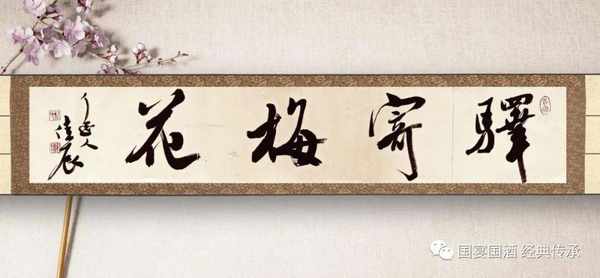 驛寄梅花
国宴国酒 经典传承